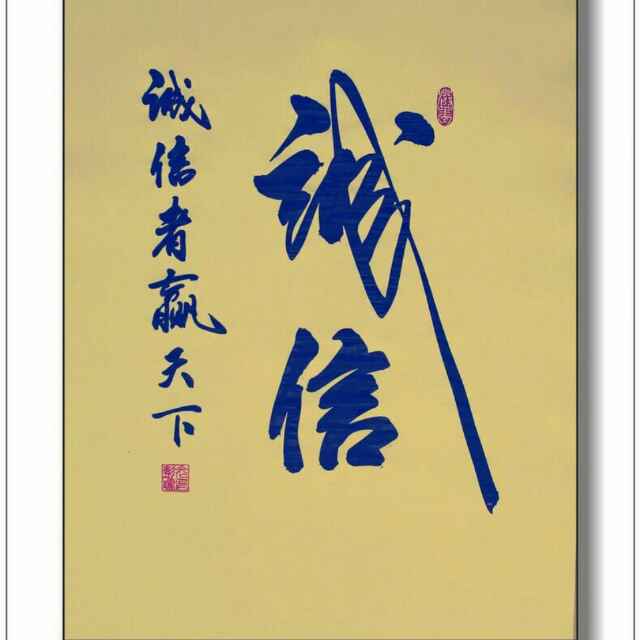 诚信
诚信者赢天下